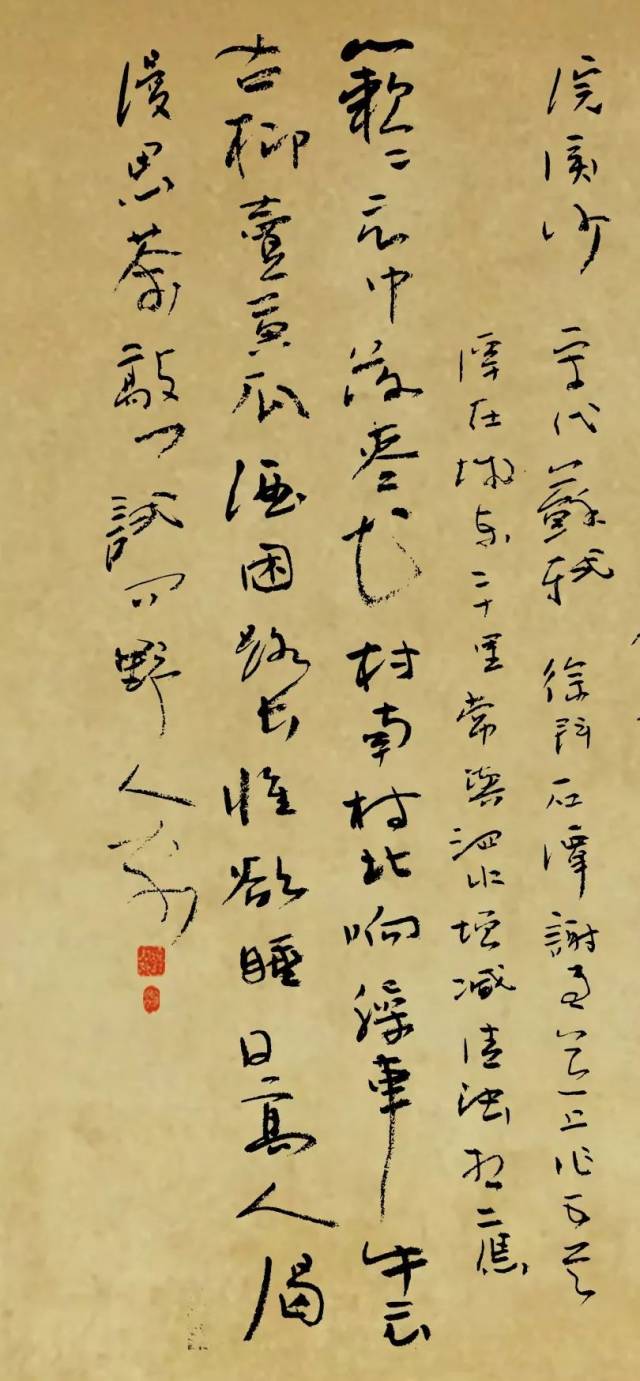 浣溪沙 宋代蘇軾 徐門石潭謝雨道上作五首
潭在城東二十里常與泗水增減清濁相應
簌簌衣巾落棗花村南村北响繰車牛衣
古柳賣黃瓜酒困路長惟欲睡日高人渴
漫思茶敲门試问野人家